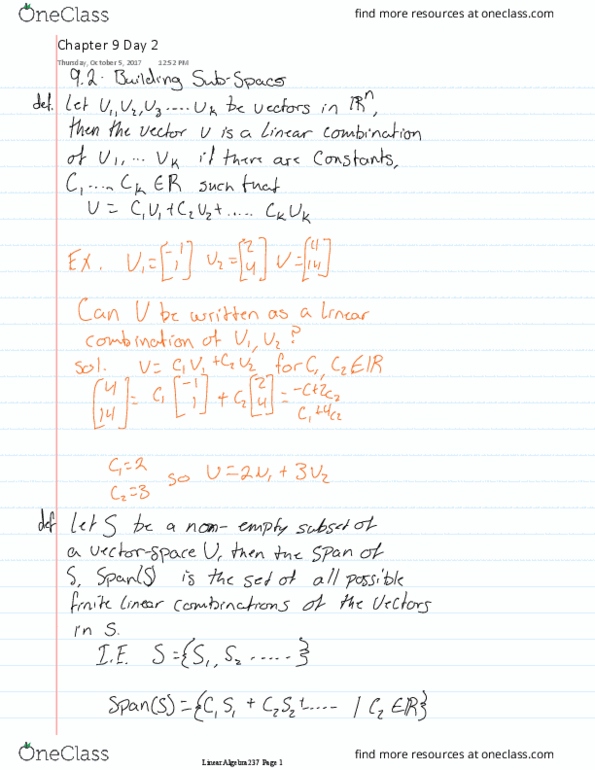 OneClass
find more resources at oneclass.com
Chapter 9 Day 2
Thursday, October 5, 2017 12:52 PM
9.2. Building Sub-Spaces
def. Let U₁, U₂, U₃ ..... Uₖ be vectors in ℝⁿ,
then the vector U is a Linear combination
of U₁, ... Uₖ if there are Constants,
C₁ ..... Cₖ ∈ ℝ such that
U = C₁U₁ + C₂U₂ + ..... CₖUₖ
Ex. U₁ = [-1 1] U₂ = [2 4] U = [4 14]
Can U be written as a linear
combination of U₁, U₂ ?
Sol. U = C₁U₁ + C₂U₂ for C₁, C₂ ∈ ℝ
[4 14] = C₁ [-1 1] + C₂ [2 4] = -C + 2C₂
C₁ + 4C₂
C₁ = 2
C₂ = 3
so U = 2U₁ + 3U₂
def Let S be a non-empty subset of
a vector-space U, then the span of
S, Span(S) is the set of all possible
finite linear combinations of the vectors
in S.
I.E. S = {S₁, S₂ ......}
Span(S) = {C₁S₁ + C₂S₂ + ..... | C₂ ∈ ℝ}
OneClass
LinearAlgebra237 Page 1
find more resources at oneclass.com